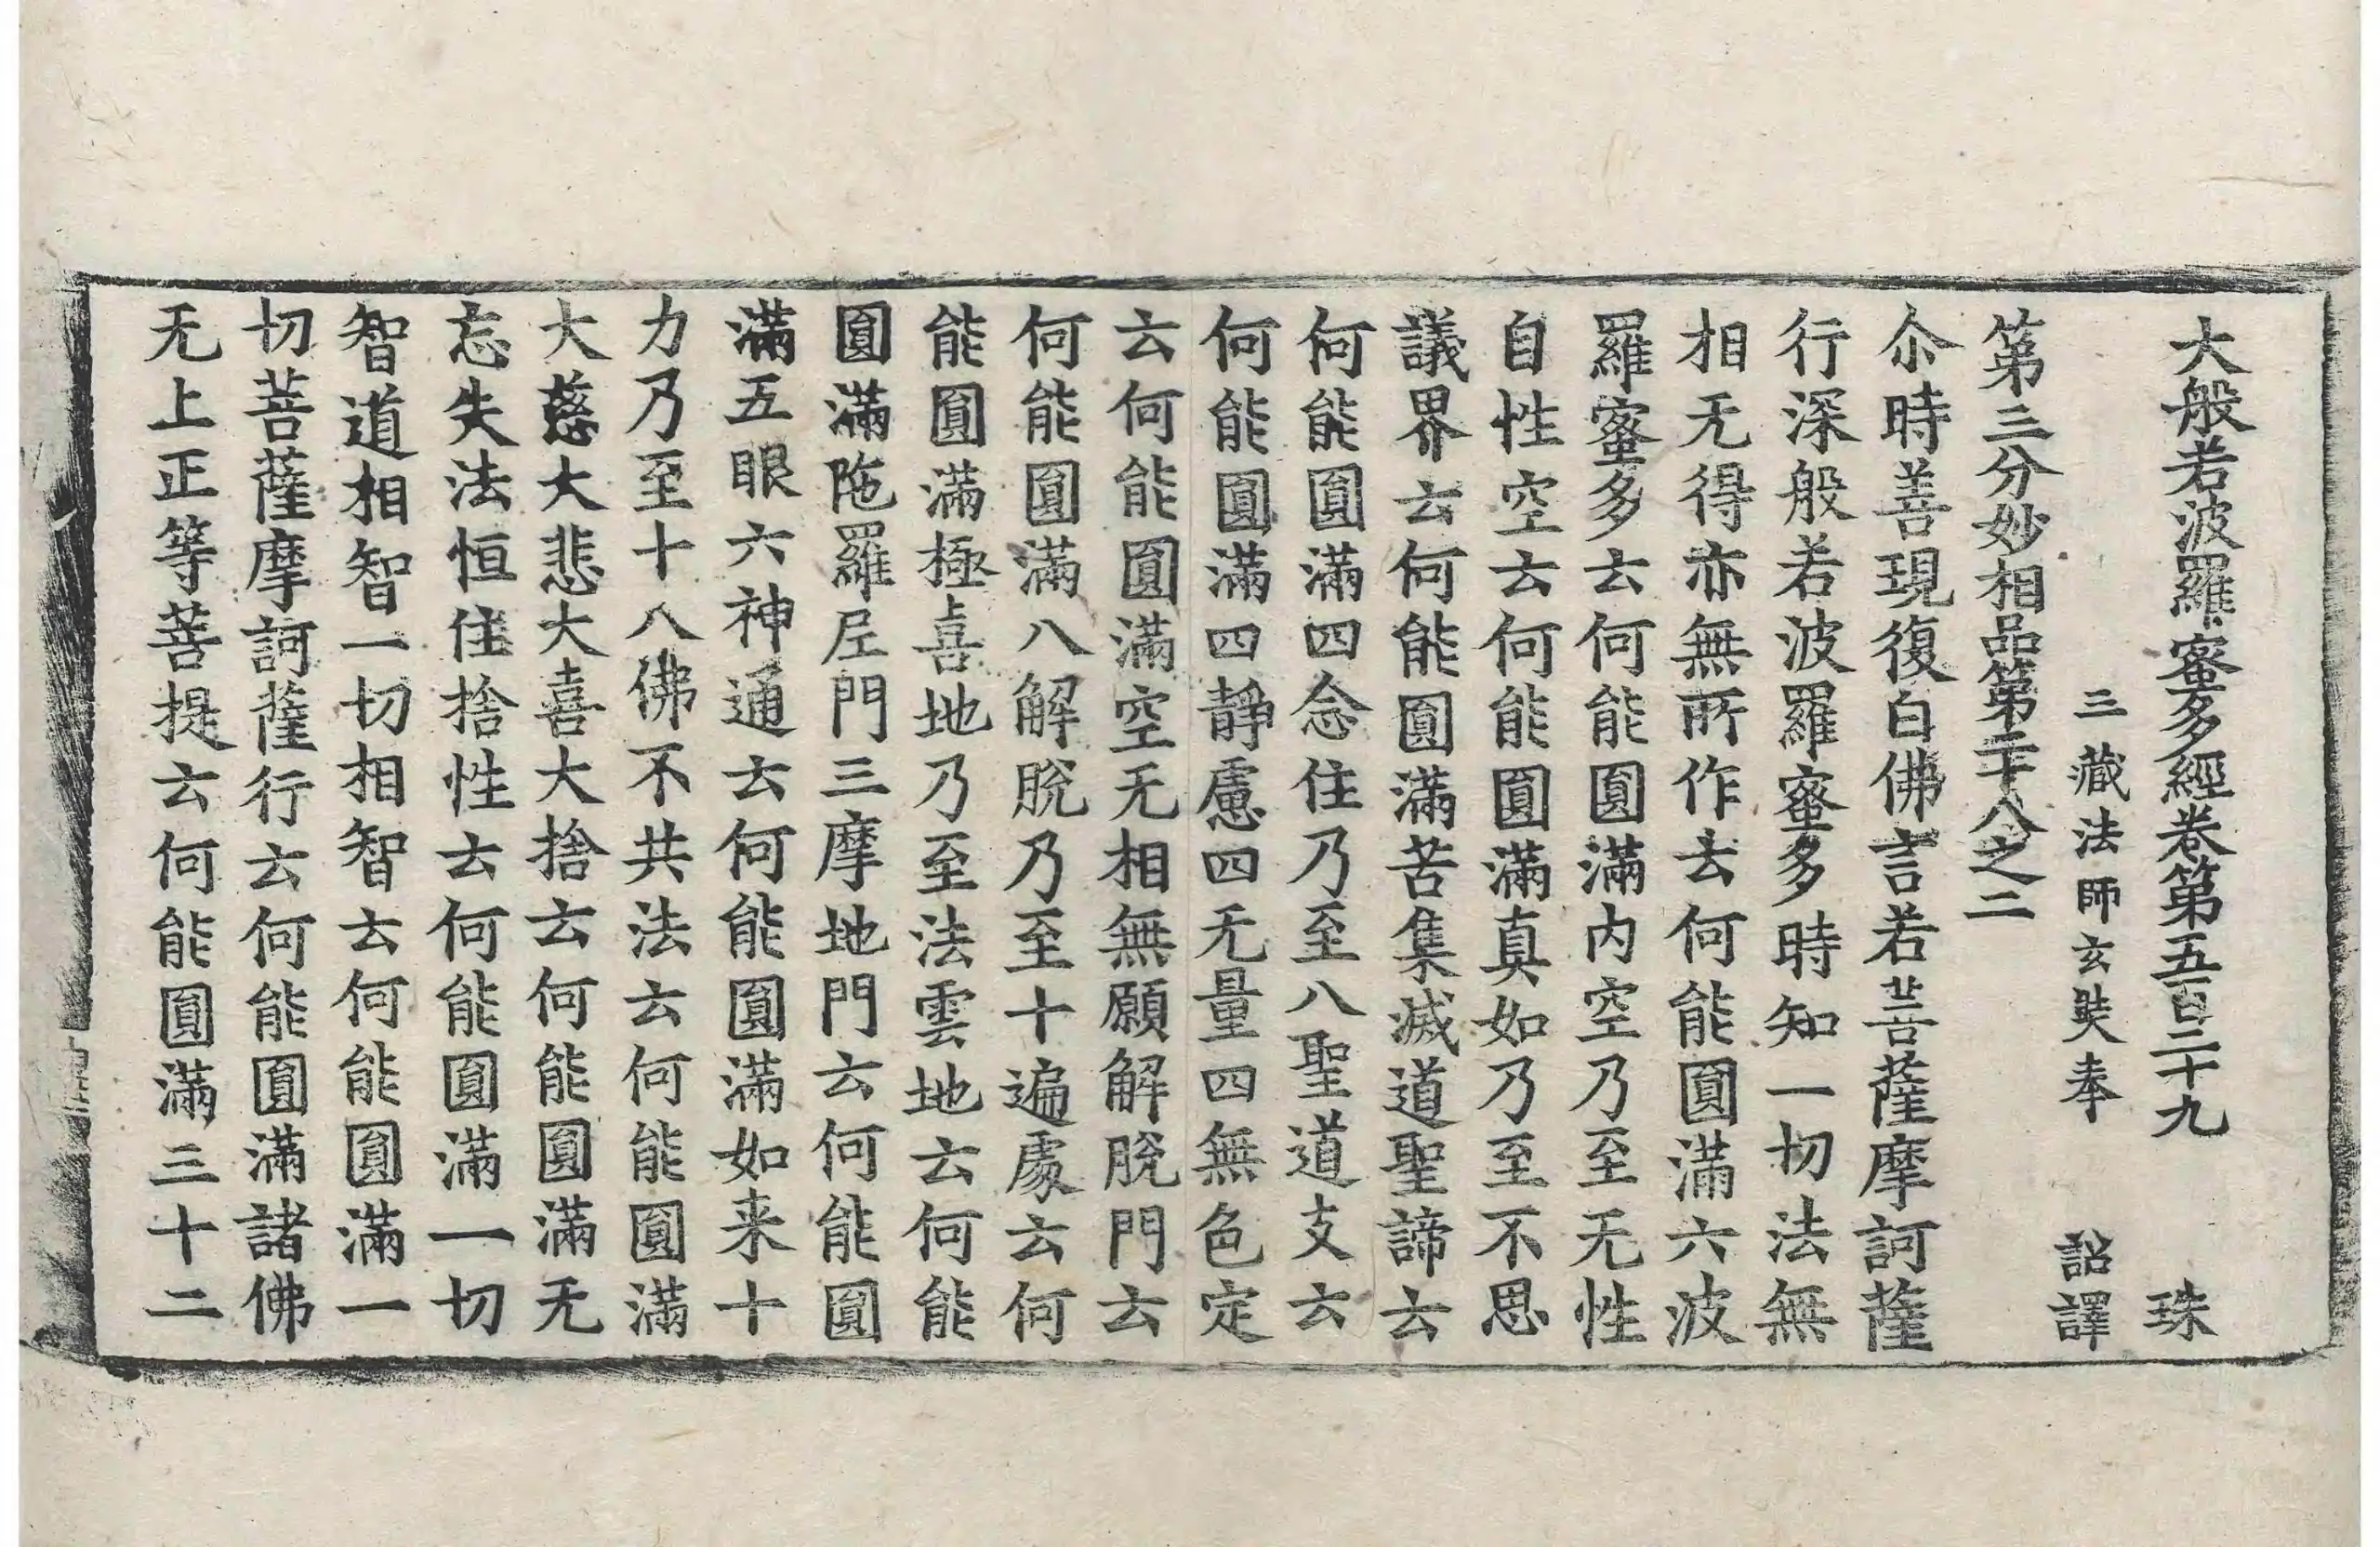 大般若波羅蜜多經卷第五百二十九 珠
三藏法師玄奘奉 詔譯
第三分妙相品第二十八之二
尒時善現復白佛言若菩薩摩訶薩
行深般若波羅蜜多時知一切法無
相无得亦無所作云何能圓滿六波
羅蜜多云何能圓滿内空乃至无性
自性空云何能圓滿真如乃至不思
議界云何能圓滿苦集滅道聖諦云
何能圓滿四念住乃至八聖道支云
何能圓滿四靜慮四无量四無色定
云何能圓滿空无相無願解脫門云
何能圓滿八解脫乃至十遍處云何
能圓滿極喜地乃至法雲地云何能
圓滿陁羅尼門三摩地門云何能圓
滿五眼六神通云何能圓滿如来十
力乃至十八佛不共法云何能圓滿
大慈大悲大喜大捨云何能圓滿无
忘失法恒住捨性云何能圓滿一切
智道相智一切相智云何能圓滿一
切菩薩摩訶薩行云何能圓滿諸佛
无上正等菩提云何能圓滿三十二